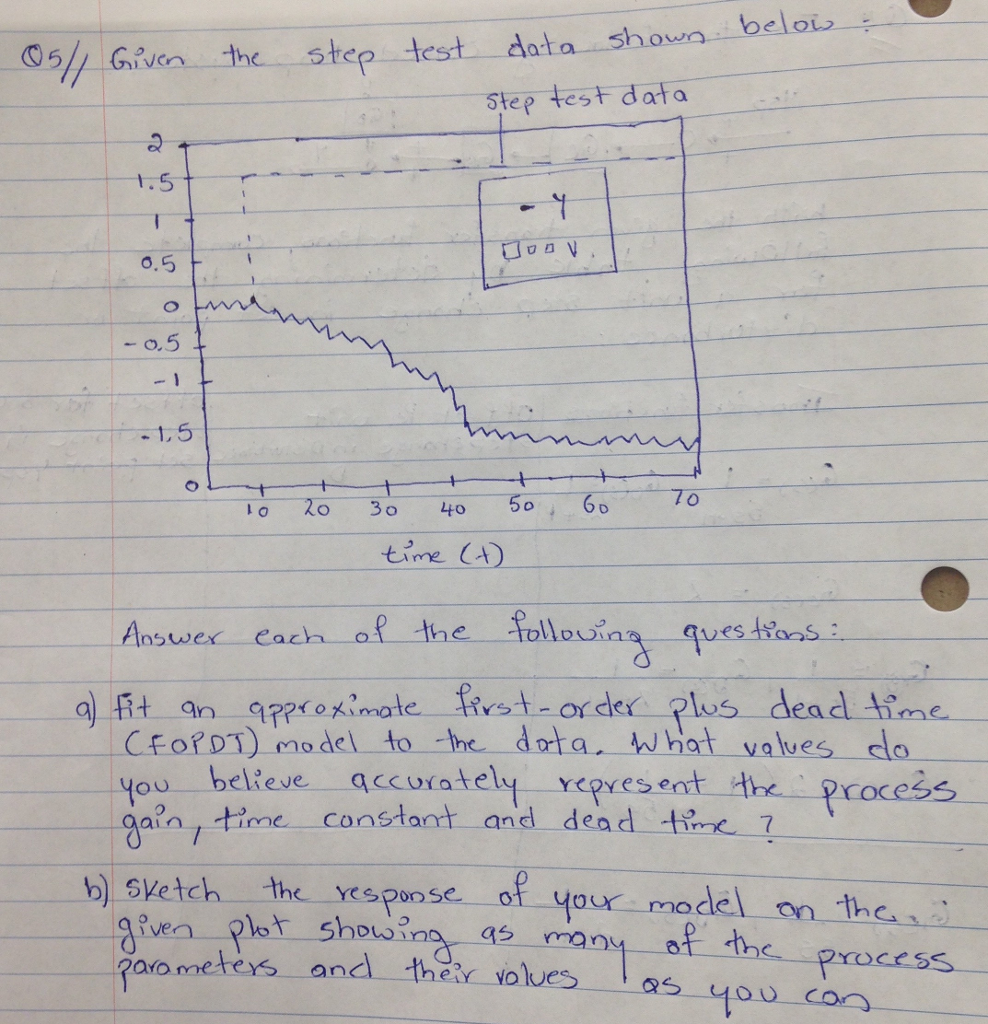 Q5// Given the step test data shown below :
step test data
2
1.5
1
0.5
0
-0.5
-1
-1.5
- Y
□□□ V
0
10 20 30 40 50 60 70
time (t)
Answer each of the following questions:
a) Fit an approximate first-order plus dead time
(FOPDT) model to the data. What values do
you believe accurately represent the process
gain, time constant and dead time ?
b) Sketch the response of your model on the
given plot showing as many of the process
parameters and their values as you can